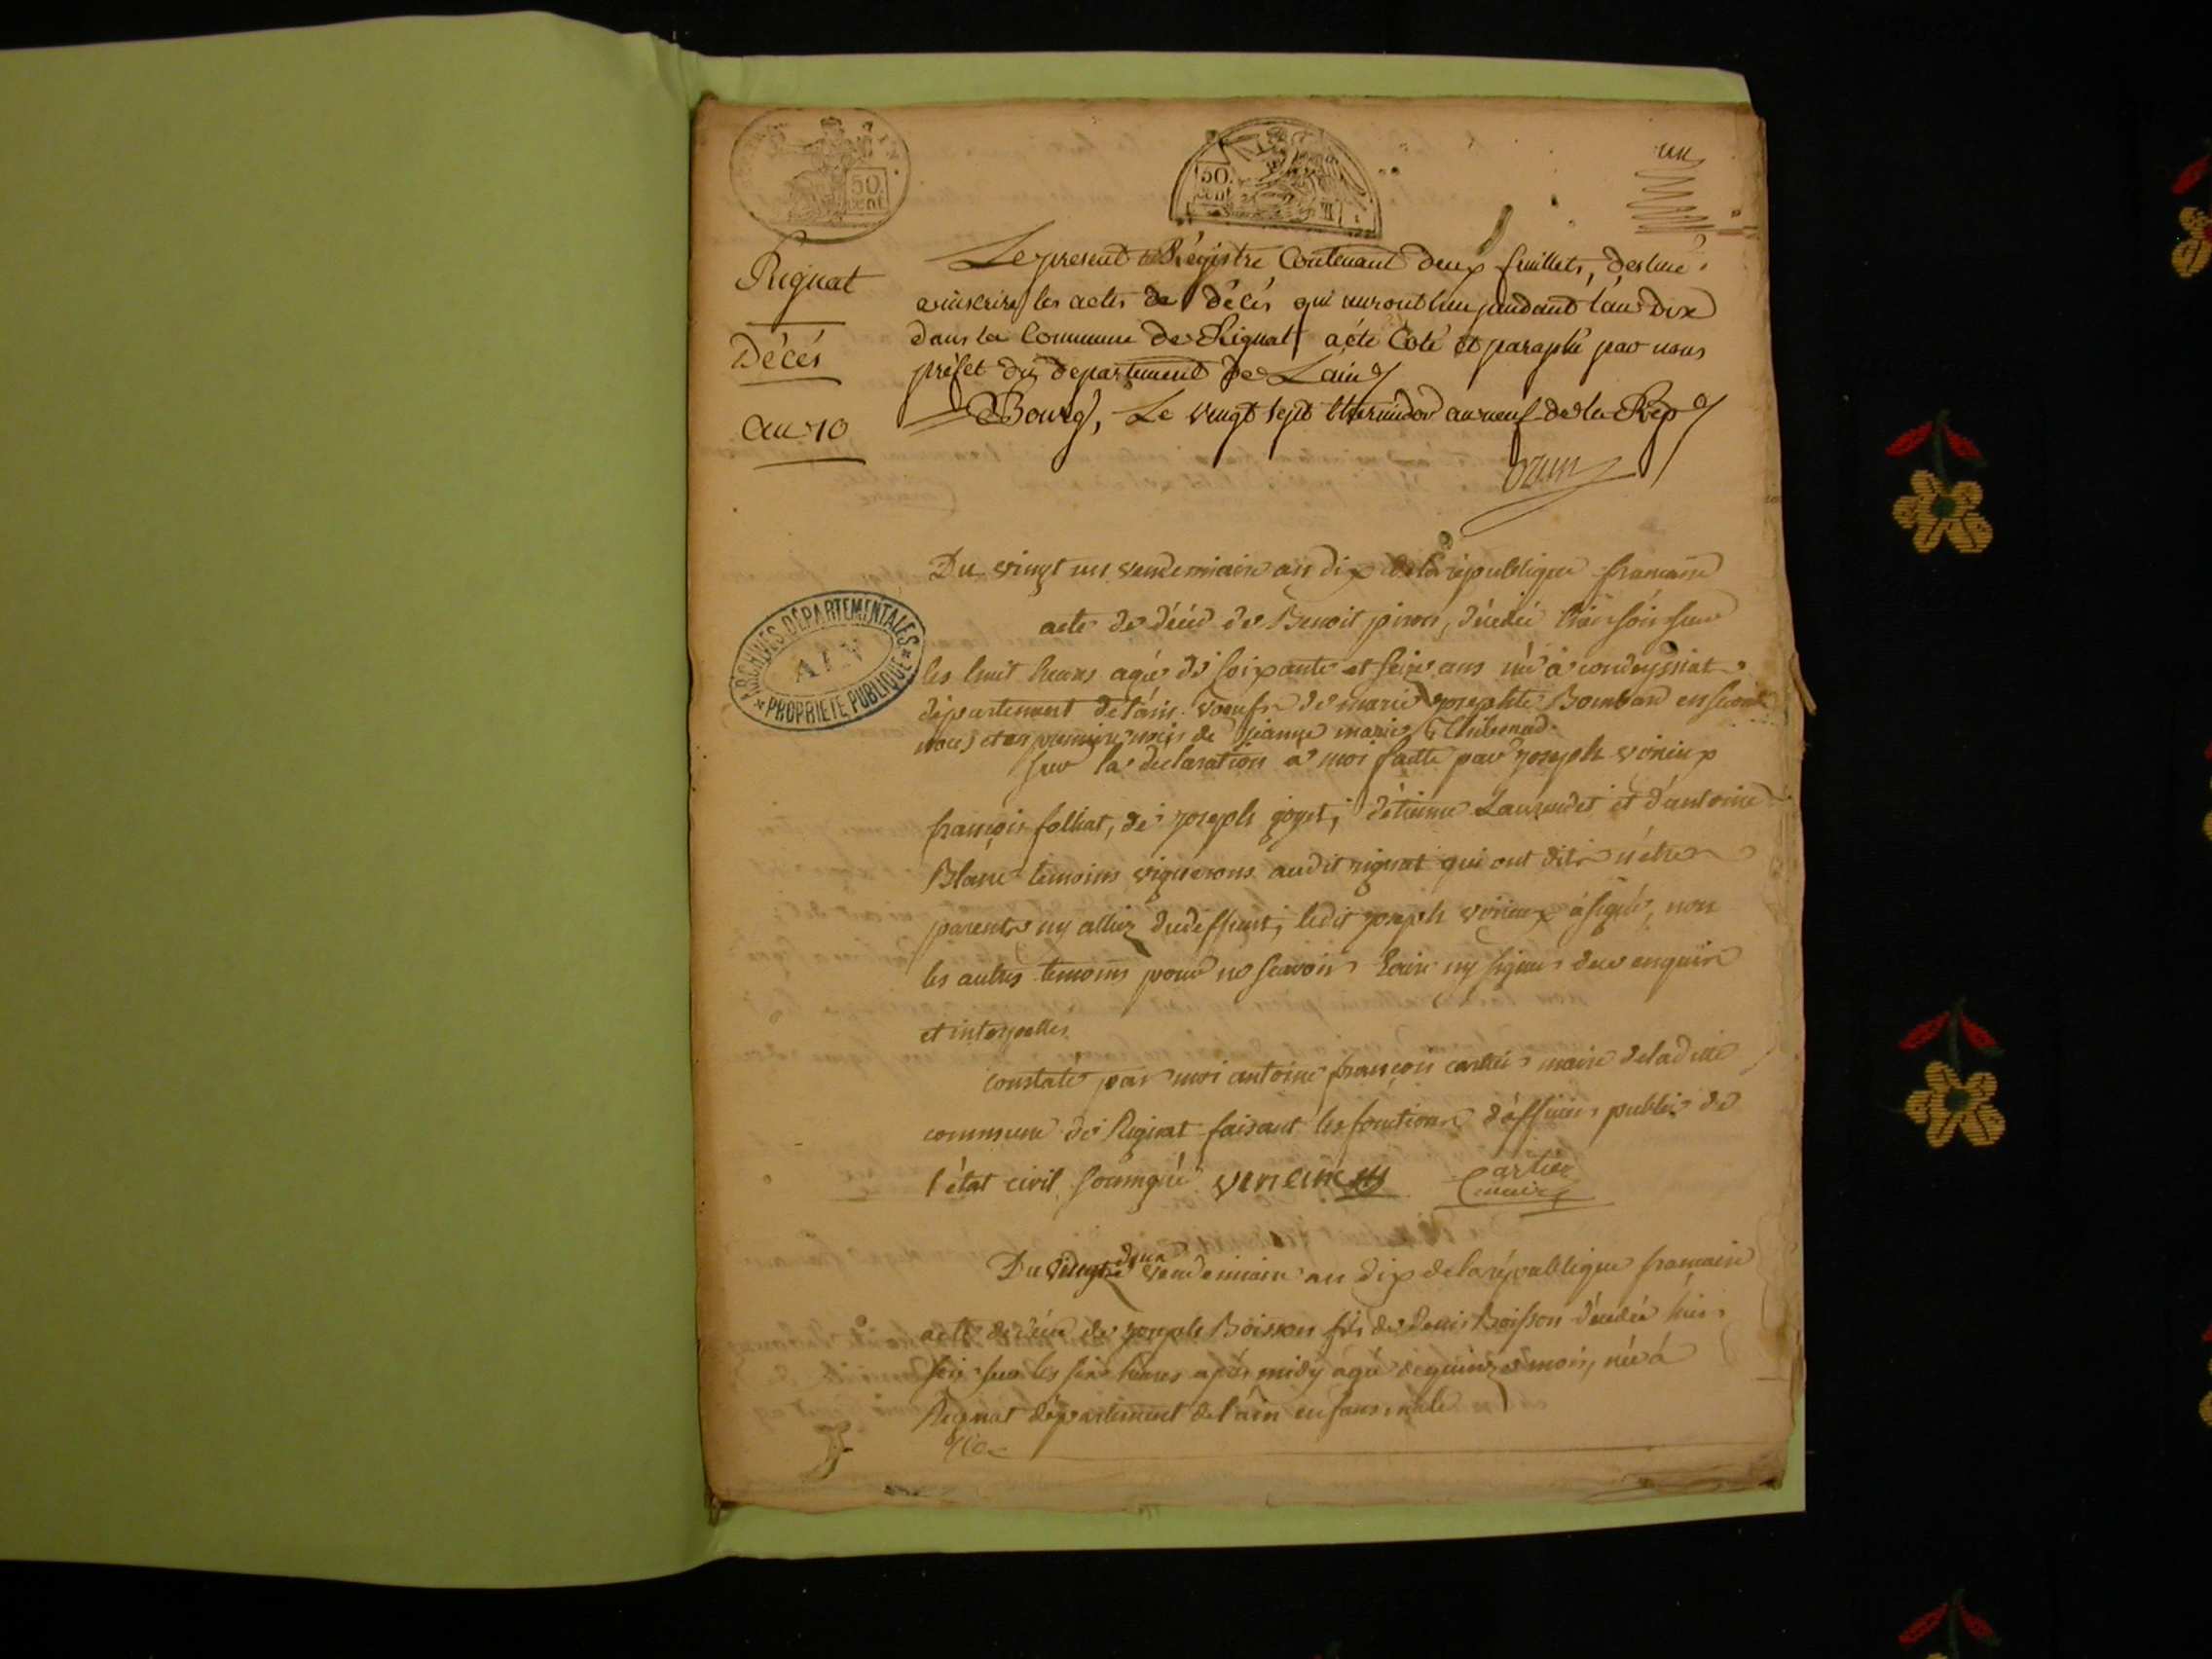 un
50. cent.
50. cent
Rignat
Décés
an 10
Le present Régistre Contenant deux feuillets, destiné
a inscrire les actes de décés qui auront lieu pendant l'an Dix
dans la Commune de Rignat a été Coté et paraphé par nous
préfet du departement de L'ain
Bourg, Le vingt sept thermidor an neuf de la Rep
ARCHIVES DÉPARTEMENTALES
AIN
PROPRIETE PUBLIQUE
Du vingt un vendemiaire an dix de la republique francaise
acte de décés de Benoit piron, décédé hier soir sur
les huit heures agé de soixante et seize ans né à condeyssiat
département de l'ain voeuf de marie josephte Bombard en seconde
noces et en premiere noces de jeanne marie Thibonnd
sur la declaration a moi faitte par joseph vivieux
françois folliat, de joseph goyet, d'étienne Laurendet et d'antoine
Blanc temoins vignerons audit rignat qui ont dit n'être
parents ny alliez du deffunt, ledit joseph vivieux à signé, non
les autres temoins pour ne scavoir Ecrire ny signer de ce enquis
et interpellés.
constaté par moi antoine françois cartier maire de la ditte
commune de Rignat faisant les fonctions d'officier public de
l'état civil soussigné Cartier
maire
Du vingt deux vendemiaire an dix de la république francaise
acte de décés de joseph Boisson fils de Denis Boisson décédé hier
soir sur les six heures après midy agé de quinze mois, né à
Rignat département de l'ain enfans male